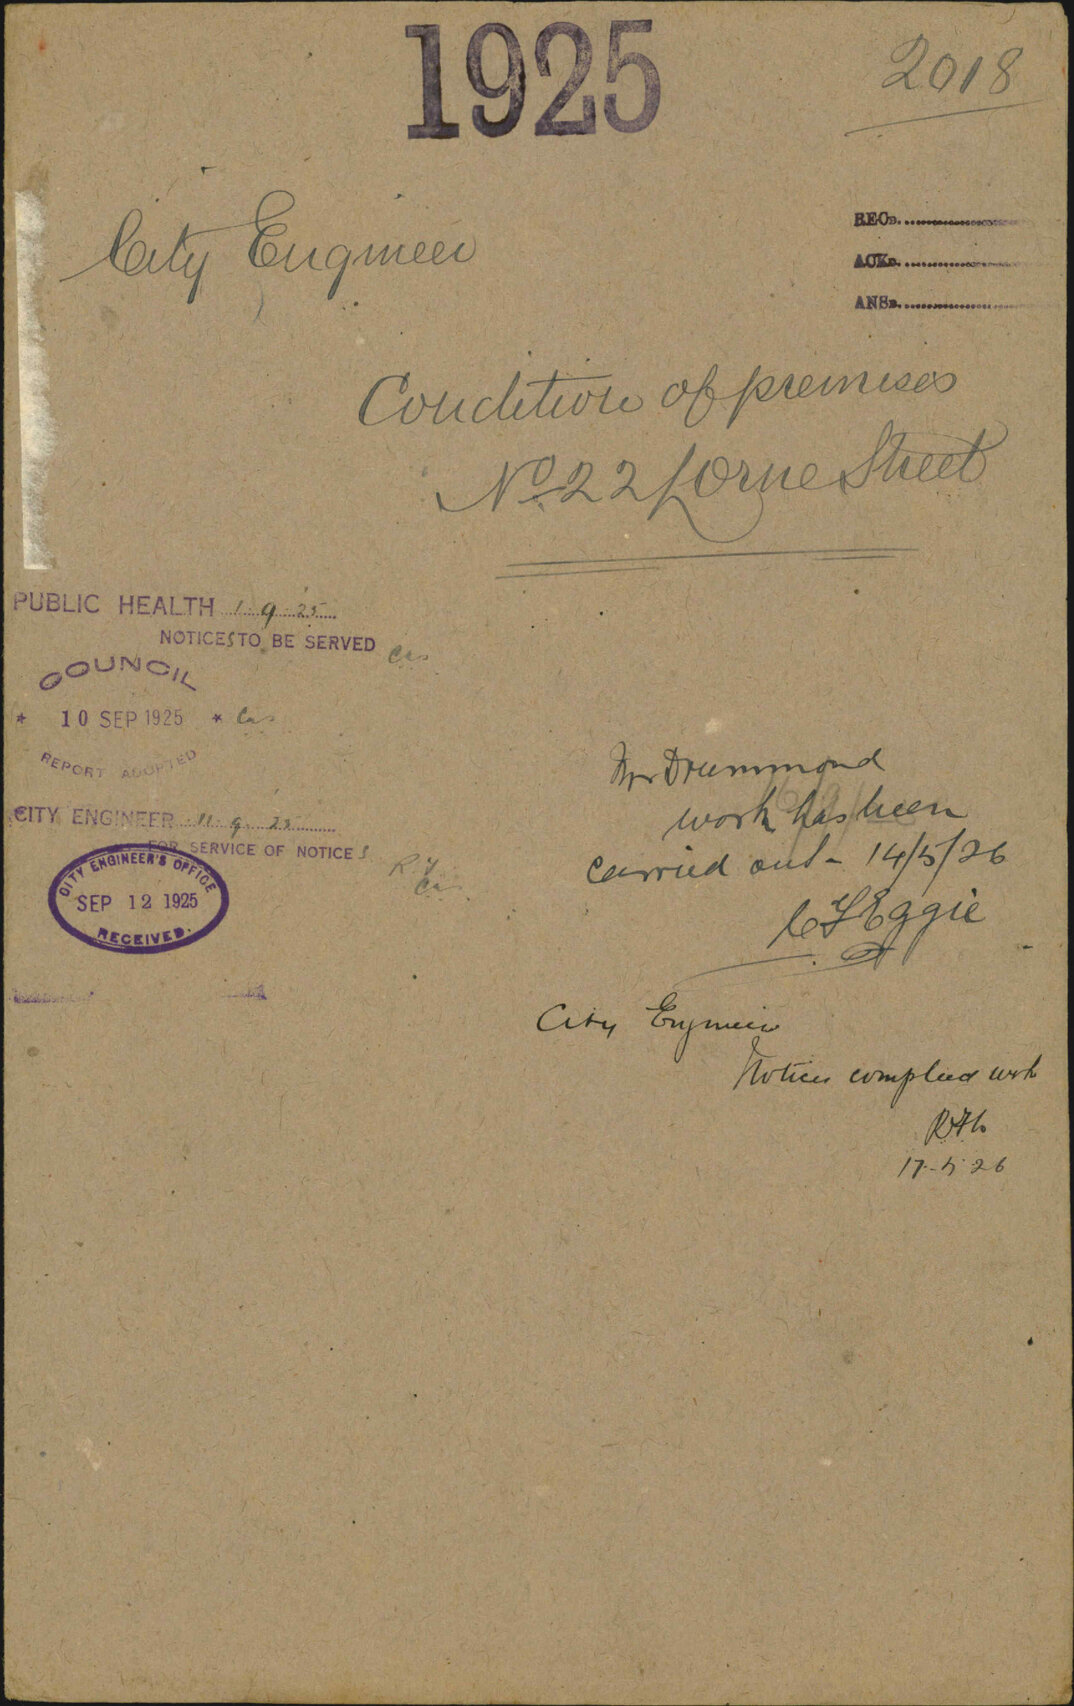 1925
2018
City Engineer
RECD.
ACKD.
ANSD.
Condition of premises
No. 22 Lorne Street
PUBLIC HEALTH 1.9.25
NOTICES TO BE SERVED
COUNCIL
* 10 SEP 1925 *
REPORT ADOPTED
CITY ENGINEER 11.9.25
FOR SERVICE OF NOTICES
CITY ENGINEER'S OFFICE
SEP 12 1925
RECEIVED.
Mr Drummond
work has been
carried out - 14/5/26
Eggie
City Engineer
Notices complied with
17.5.26